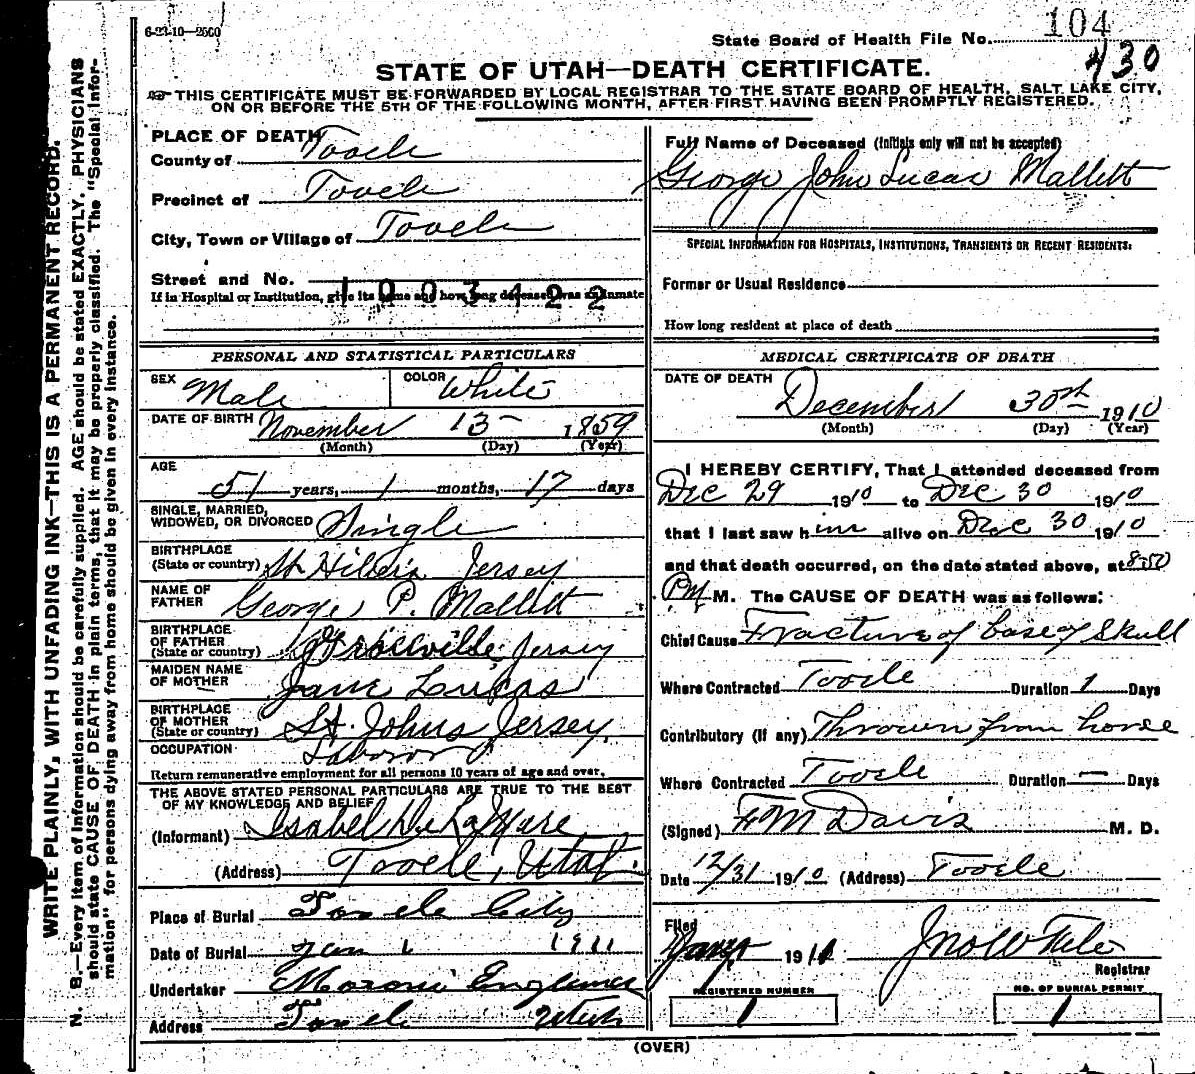 6-23-10—2500
104
State Board of Health File No.
430
STATE OF UTAH—DEATH CERTIFICATE.
THIS CERTIFICATE MUST BE FORWARDED BY LOCAL REGISTRAR TO THE STATE BOARD OF HEALTH, SALT LAKE CITY,
ON OR BEFORE THE 5TH OF THE FOLLOWING MONTH, AFTER FIRST HAVING BEEN PROMPTLY REGISTERED.
WRITE PLAINLY, WITH UNFADING INK—THIS IS A PERMANENT RECORD.
N. B.—Every item of information should be carefully supplied. AGE should be stated EXACTLY. PHYSICIANS
should state CAUSE OF DEATH in plain terms, that it may be properly classified. The "Special Infor-
mation" for persons dying away from home should be given in every instance.
PLACE OF DEATH
County of Tooele
Precinct of Tooele
City, Town or Village of Tooele
Street and No.
1003422
If in Hospital or Institution, give its name and how long deceased was an inmate
PERSONAL AND STATISTICAL PARTICULARS
SEX Male COLOR White
DATE OF BIRTH November 13 1859
(Month) (Day) (Year)
AGE
51 years, 1 months, 17 days
SINGLE, MARRIED,
WIDOWED, OR DIVORCED Single
BIRTHPLACE
(State or country) St Jersey
NAME OF
FATHER George P. Mallett
BIRTHPLACE
OF FATHER
(State or country) Jersey
MAIDEN NAME
OF MOTHER Jane Lucas
BIRTHPLACE
OF MOTHER
(State or country) St. Johns Jersey.
OCCUPATION Laborer
Return remunerative employment for all persons 10 years of age and over.
THE ABOVE STATED PERSONAL PARTICULARS ARE TRUE TO THE BEST
OF MY KNOWLEDGE AND BELIEF
(Informant) Isabel
(Address) Tooele, Utah.
Place of Burial Tooele City
Date of Burial Jan 1 1911
Undertaker Moroni
Address Tooele Utah
Full Name of Deceased (Initials only will not be accepted)
George John Lucas Mallett
SPECIAL INFORMATION FOR HOSPITALS, INSTITUTIONS, TRANSIENTS OR RECENT RESIDENTS:
Former or Usual Residence
How long resident at place of death
MEDICAL CERTIFICATE OF DEATH
DATE OF DEATH
December 30th 1910
(Month) (Day) (Year)
I HEREBY CERTIFY, That I attended deceased from
Dec 29 1910 to Dec 30 1910
that I last saw him alive on Dec 30 1910
and that death occurred, on the date stated above, at 8:50
PM M. The CAUSE OF DEATH was as follows:
Chief Cause Fracture of base of Skull
Where Contracted Tooele Duration 1 Days
Contributory (if any) Thrown from horse
Where Contracted Tooele Duration — Days
(Signed) F M Davis M. D.
Date 12/31 1910 (Address) Tooele
Filed
1911 Jno W
Registrar
REGISTERED NUMBER
1
NO. OF BURIAL PERMIT
1
(OVER)